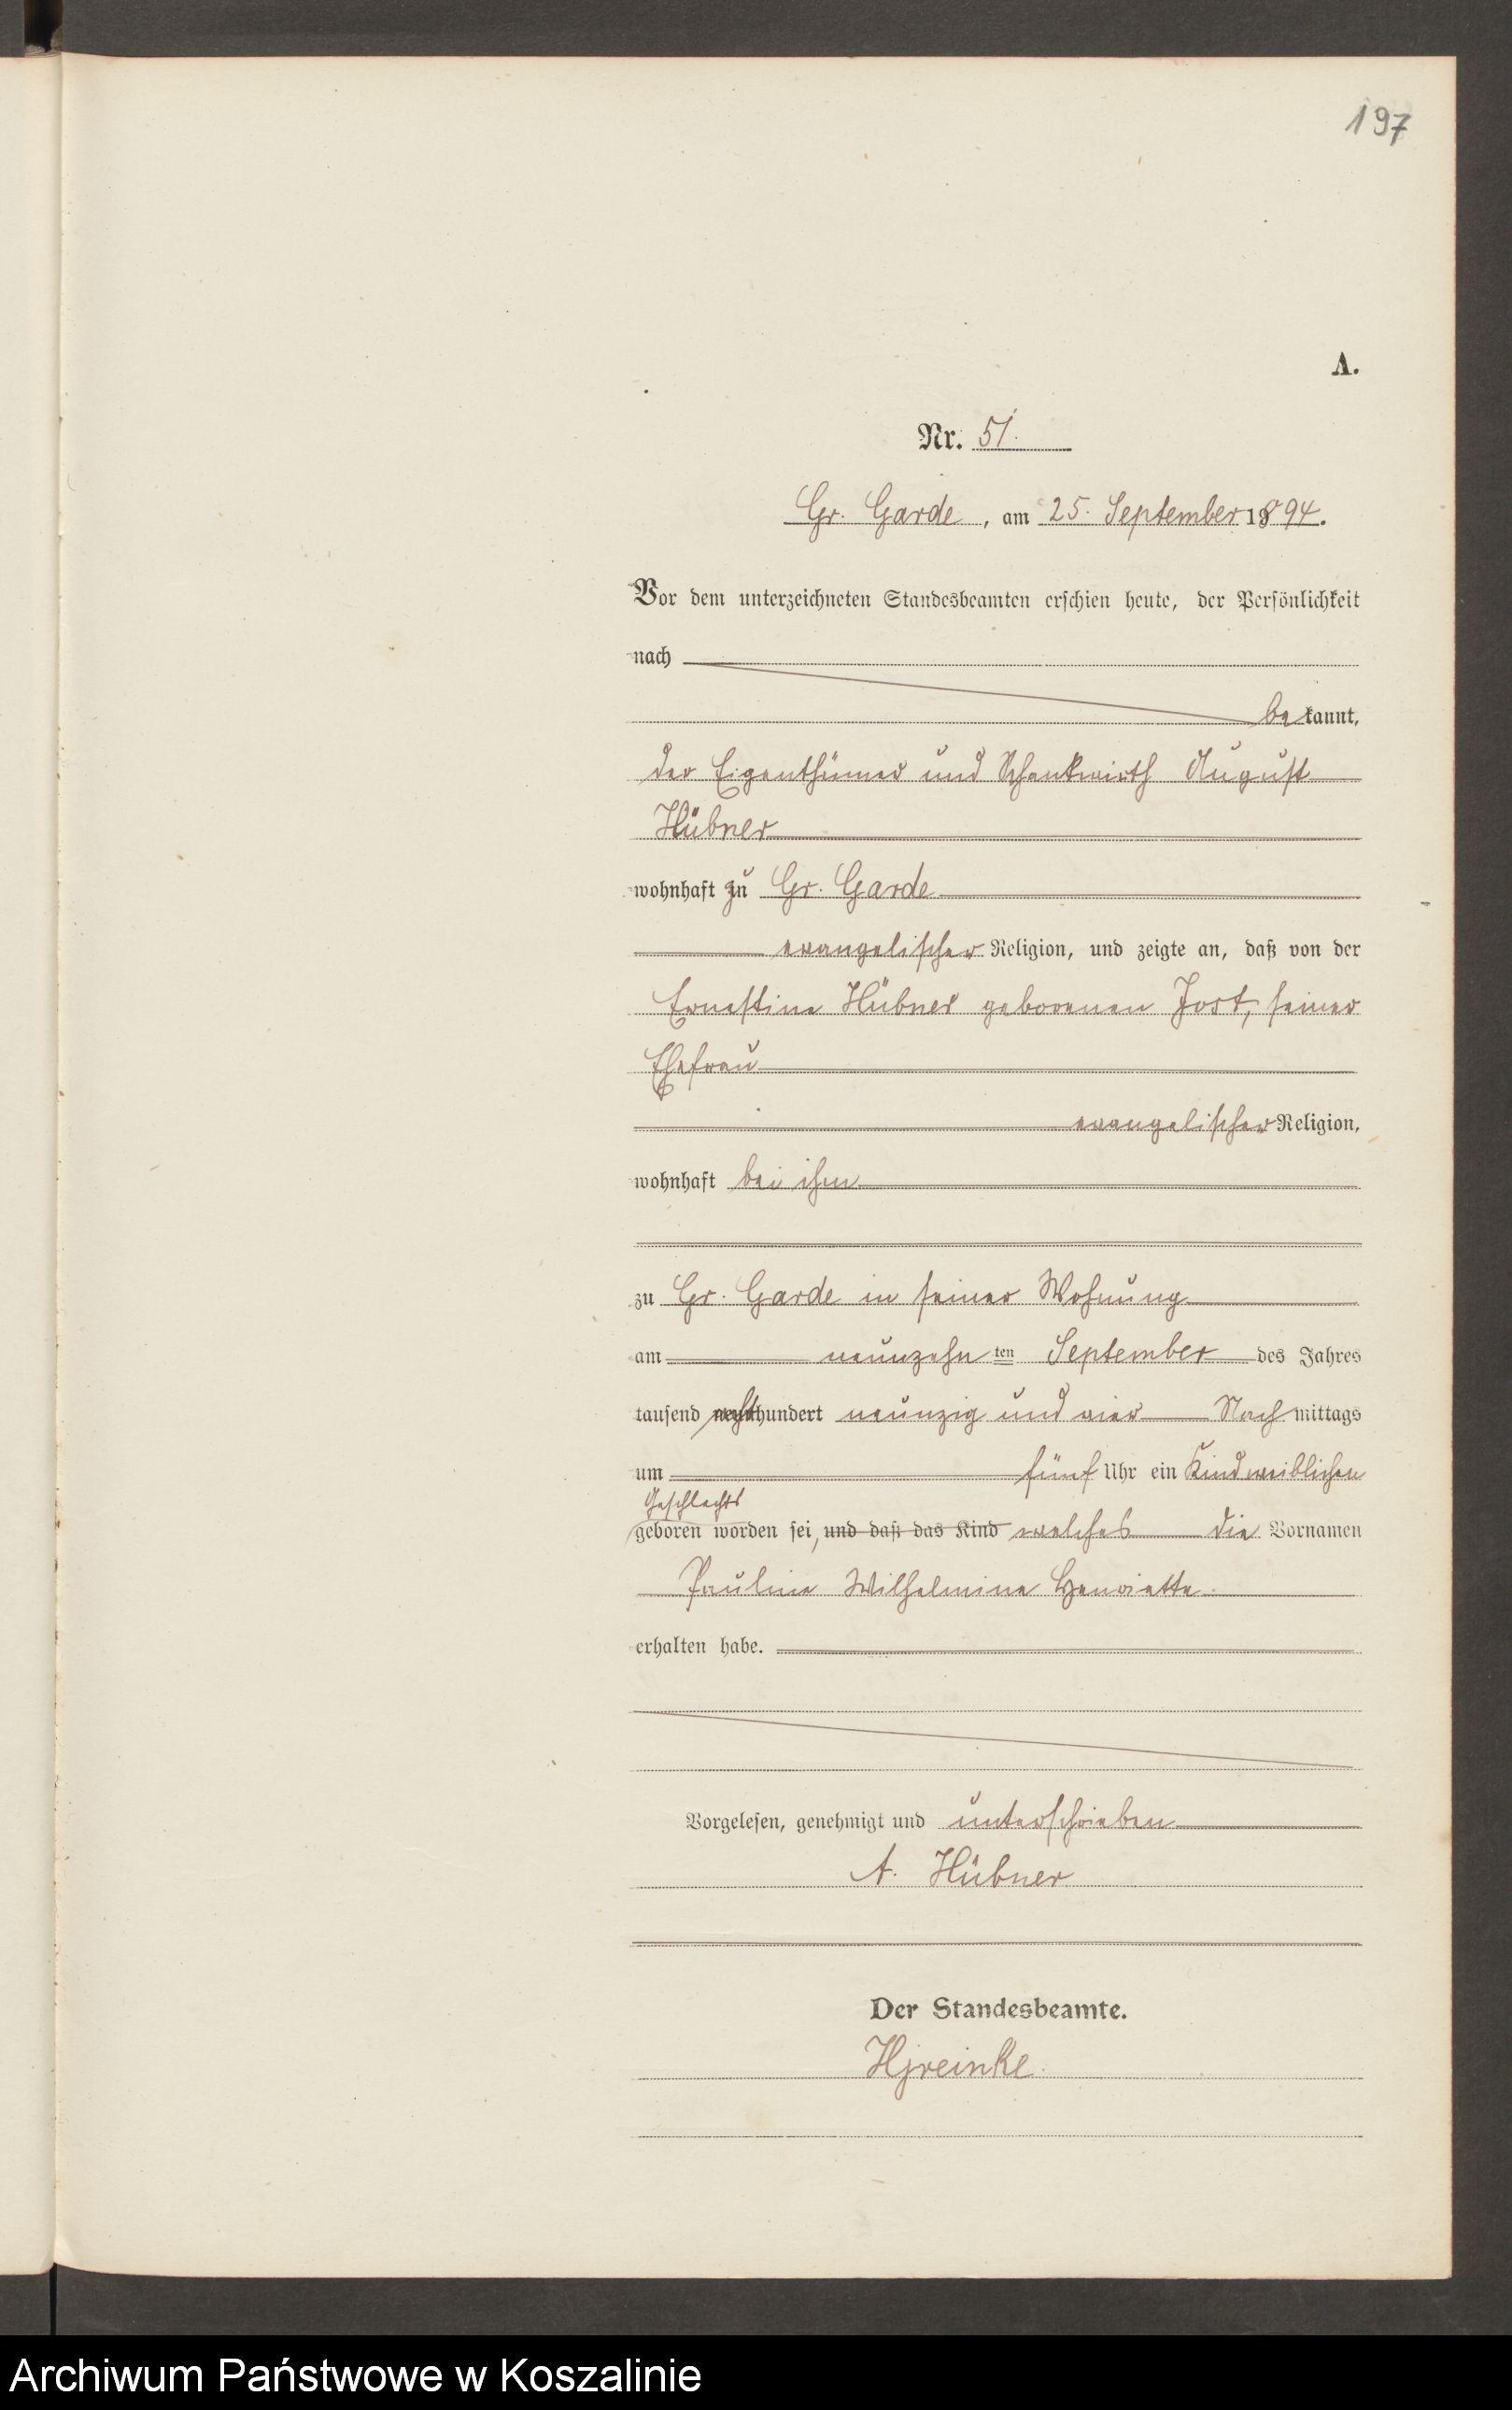 197
A.
Nr. 51.
Gr. Garde, am 25. September 1894.
Vor dem unterzeichneten Standesbeamten erschien heute, der Persönlichkeit
nach
bekannt,
der Eigenthümer und Schankwirth August
Hübner
wohnhaft zu Gr. Garde
evangelischer Religion, und zeigte an, daß von der
Ernestine Hübner geborenen Jost, seiner
Ehefrau
evangelischer Religion,
wohnhaft bei ihm
zu Gr. Garde in seiner Wohnung
am neunzehn ten September des Jahres
tausend achthundert neunzig und vier Nachmittags
um fünf Uhr ein Kind weiblichen
Geschlechts
geboren worden sei, und daß das Kind welches die Vornamen
Pauline Wilhelmine Henriette
erhalten habe.
Vorgelesen, genehmigt und unterschrieben
A. Hübner
Der Standesbeamte.
Archiwum Państwowe w Koszalinie